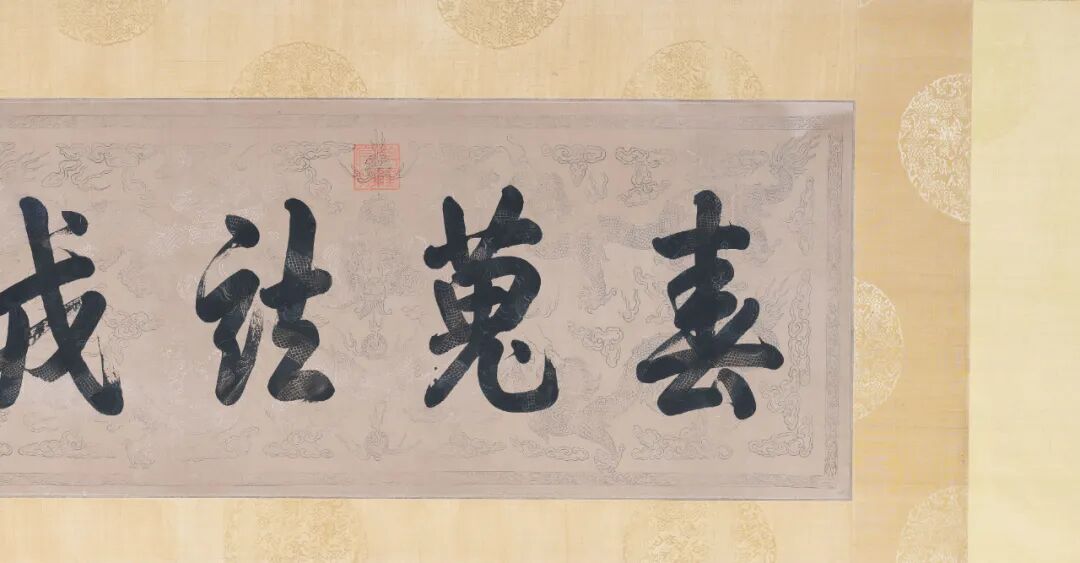 春蒐詰戎